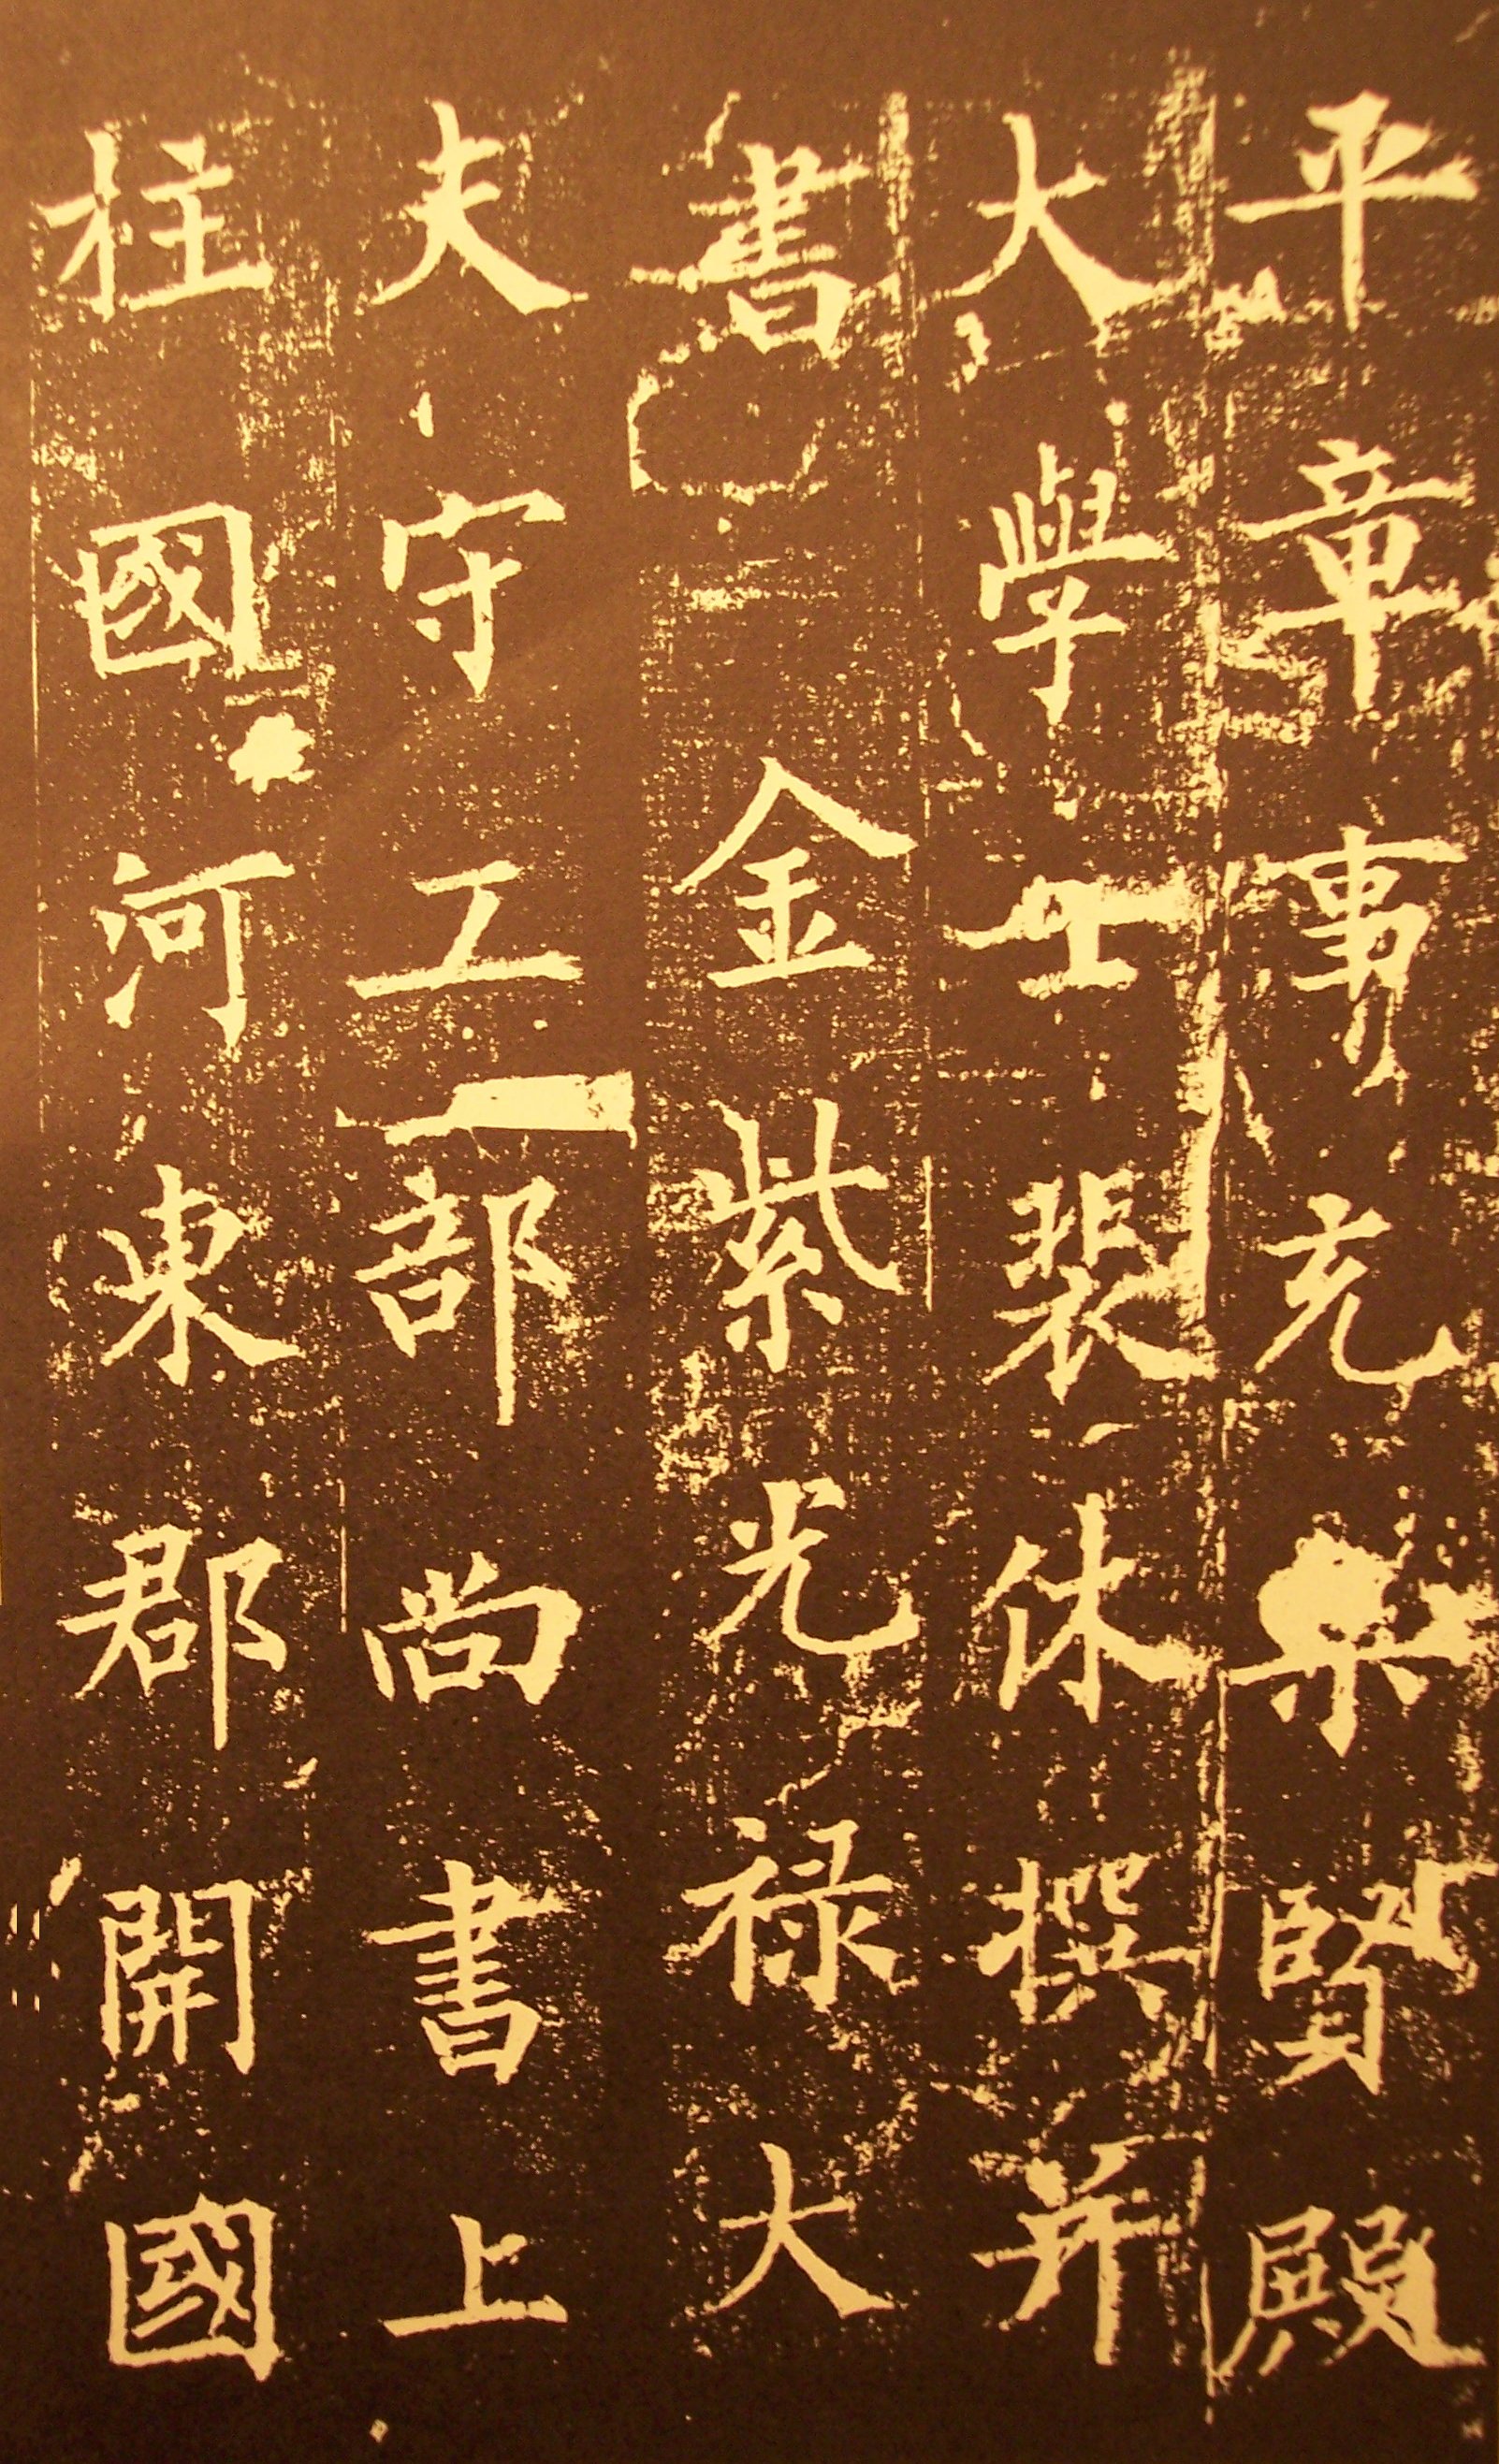 平章事充集賢殿
大學士裴休撰并
書
金紫光禄大
夫守工部尚書上
柱國河東郡開國